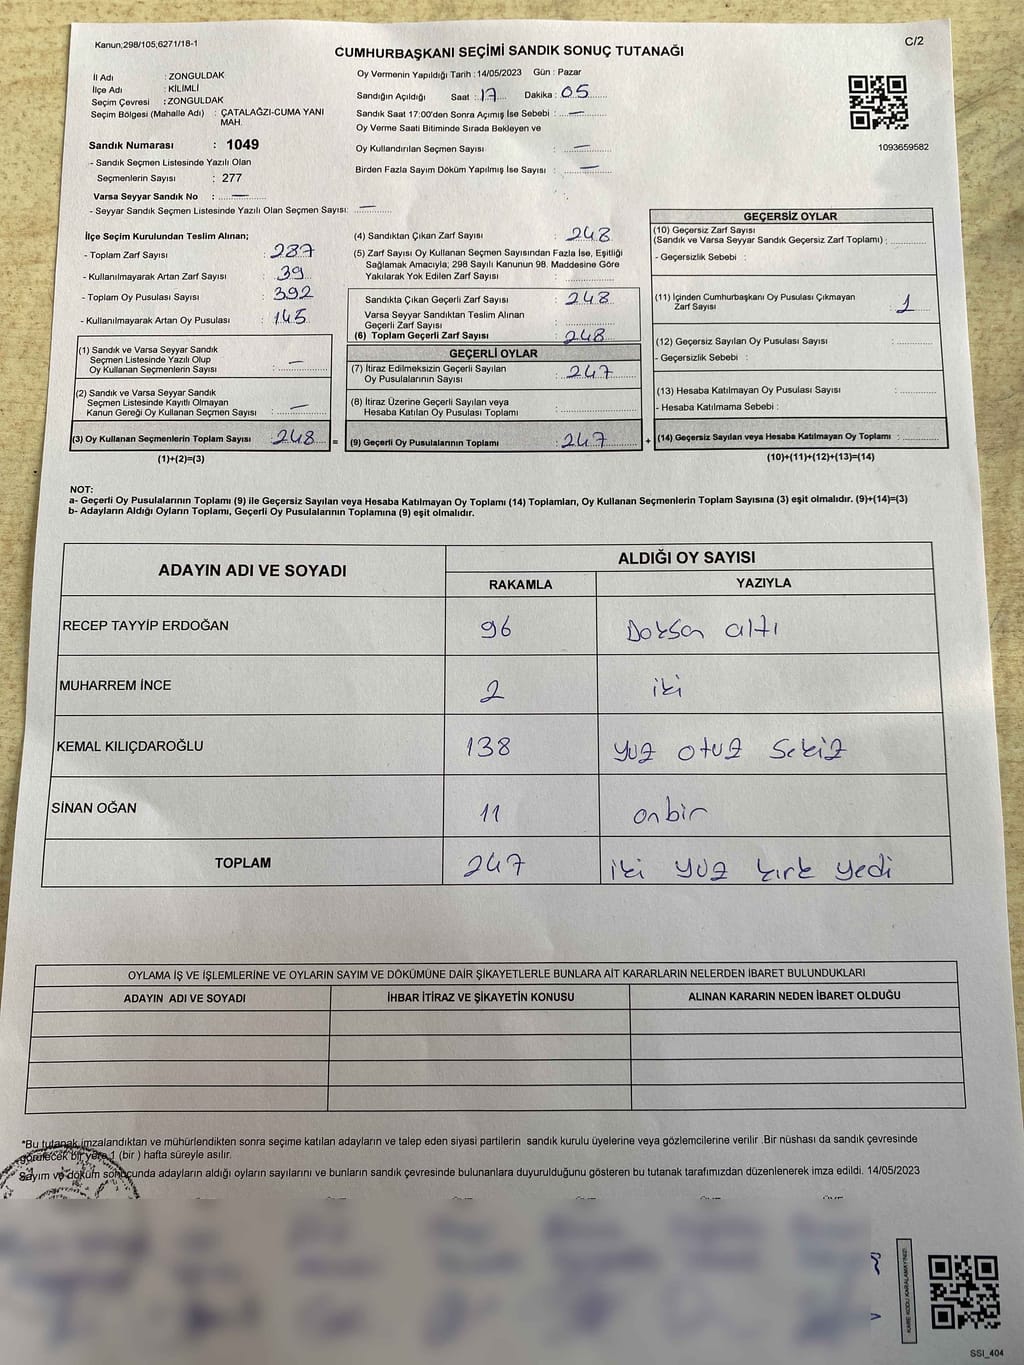 Kanun;298/105;6271/18-1
C/2
CUMHURBAŞKANI SEÇİMİ SANDIK SONUÇ TUTANAĞI
İl Adı : ZONGULDAK
İlçe Adı : KİLİMLİ
Seçim Çevresi : ZONGULDAK
Seçim Bölgesi (Mahalle Adı) : ÇATALAĞZI-CUMA YANI
MAH.
Sandık Numarası : 1049
- Sandık Seçmen Listesinde Yazılı Olan
Seçmenlerin Sayısı : 277
Varsa Seyyar Sandık No : —
- Seyyar Sandık Seçmen Listesinde Yazılı Olan Seçmen Sayısı: —
Oy Vermenin Yapıldığı Tarih : 14/05/2023 Gün : Pazar
Sandığın Açıldığı Saat : 17 Dakika : 05
Sandık Saat 17:00'den Sonra Açımış İse Sebebi : —
Oy Verme Saati Bitiminde Sırada Bekleyen ve
Oy Kullandırılan Seçmen Sayısı : —
Birden Fazla Sayım Döküm Yapılmış İse Sayısı : —
1093659582
İlçe Seçim Kurulundan Teslim Alınan;
- Toplam Zarf Sayısı : 287
- Kullanılmayarak Artan Zarf Sayısı : 39
- Toplam Oy Pusulası Sayısı : 392
- Kullanılmayarak Artan Oy Pusulası : 145
(1) Sandık ve Varsa Seyyar Sandık
Seçmen Listesinde Yazılı Olup
Oy Kullanan Seçmenlerin Sayısı : —
(2) Sandık ve Varsa Seyyar Sandık
Seçmen Listesinde Kayıtlı Olmayan
Kanun Gereği Oy Kullanan Seçmen Sayısı : —
(3) Oy Kullanan Seçmenlerin Toplam Sayısı : 248 =
(1)+(2)=(3)
(4) Sandıktan Çıkan Zarf Sayısı : 248
(5) Zarf Sayısı Oy Kullanan Seçmen Sayısından Fazla İse, Eşitliği
Sağlamak Amacıyla; 298 Sayılı Kanunun 98. Maddesine Göre
Yakılarak Yok Edilen Zarf Sayısı :
Sandıkta Çıkan Geçerli Zarf Sayısı : 248
Varsa Seyyar Sandıktan Teslim Alınan
Geçerli Zarf Sayısı :
(6) Toplam Geçerli Zarf Sayısı : 248
GEÇERLİ OYLAR
(7) İtiraz Edilmeksizin Geçerli Sayılan
Oy Pusulalarının Sayısı : 247
(8) İtiraz Üzerine Geçerli Sayılan veya
Hesaba Katılan Oy Pusulası Toplamı :
(9) Geçerli Oy Pusulalarının Toplamı : 247 +
GEÇERSİZ OYLAR
(10) Geçersiz Zarf Sayısı
(Sandık ve Varsa Seyyar Sandık Geçersiz Zarf Toplamı) :
- Geçersizlik Sebebi :
(11) İçinden Cumhurbaşkanı Oy Pusulası Çıkmayan
Zarf Sayısı : 1
(12) Geçersiz Sayılan Oy Pusulası Sayısı :
- Geçersizlik Sebebi :
(13) Hesaba Katılmayan Oy Pusulası Sayısı :
- Hesaba Katılmama Sebebi :
(14) Geçersiz Sayılan veya Hesaba Katılmayan Oy Toplamı :
(10)+(11)+(12)+(13)=(14)
NOT:
a- Geçerli Oy Pusulalarının Toplamı (9) ile Geçersiz Sayılan veya Hesaba Katılmayan Oy Toplamı (14) Toplamları, Oy Kullanan Seçmenlerin Toplam Sayısına (3) eşit olmalıdır. (9)+(14)=(3)
b- Adayların Aldığı Oyların Toplamı, Geçerli Oy Pusulalarının Toplamına (9) eşit olmalıdır.
ADAYIN ADI VE SOYADI ALDIĞI OY SAYISI
RAKAMLA YAZIYLA
RECEP TAYYİP ERDOĞAN 96 Doksan altı
MUHARREM İNCE 2 iki
KEMAL KILIÇDAROĞLU 138 yüz otuz sekiz
SİNAN OĞAN 11 onbir
TOPLAM 247 iki yüz kırk yedi
OYLAMA İŞ VE İŞLEMLERİNE VE OYLARIN SAYIM VE DÖKÜMÜNE DAİR ŞİKAYETLERLE BUNLARA AİT KARARLARIN NELERDEN İBARET BULUNDUKLARI
ADAYIN ADI VE SOYADI İHBAR İTİRAZ VE ŞİKAYETİN KONUSU ALINAN KARARIN NEDEN İBARET OLDUĞU
*Bu tutanak imzalandıktan ve mühürlendikten sonra seçime katılan adayların ve talep eden siyasi partilerin sandık kurulu üyelerine veya gözlemcilerine verilir .Bir nüshası da sandık çevresinde
görülecek bir yere 1 (bir ) hafta süreyle asılır.
Sayım ve döküm sonucunda adayların aldığı oyların sayılarını ve bunların sandık çevresinde bulunanlara duyurulduğunu gösteren bu tutanak tarafımızdan düzenlenerek imza edildi. 14/05/2023
KARE KODU KARALAMAYINIZ!
SSI_404